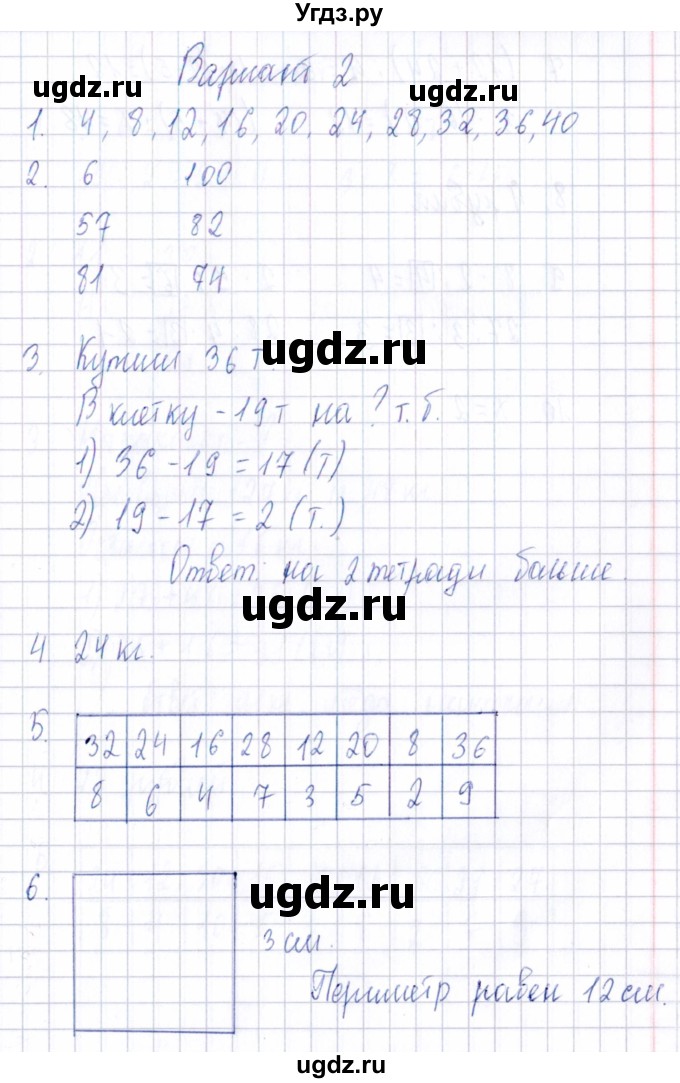 Угдз.ру
Вариант 2
ugdz.ru ugdz.ru
1. 4, 8, 12, 16, 20, 24, 28, 32, 36, 40
2. 6 100
57 82
81 74
3. Купили 36 т.
ugdz.ru
В клетку - 19 т на ? т. б.
1) 36 - 19 = 17 (т)
2) 19 - 17 = 2 (т.)
Ответ: на 2 тетради больше.
ugdz.ru
4. 24 кг.
5. 32 24 16 28 12 20 8 36
8 6 4 7 3 5 2 9
6. ugdz.ru
3 см.
Периметр равен 12 см.
ugdz.ru